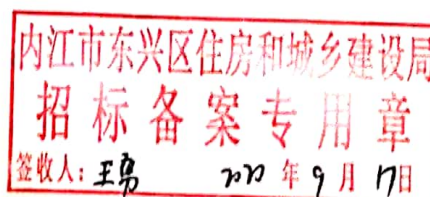 内江市东兴区住房和城乡建设局
招标备案专用章
签收人：王勇 2020年9月17日